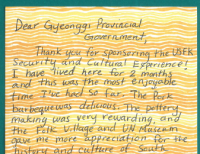 Dear Gyeonggi Provincial
Government,
Thank you for sponsoring the USFK
Security and Cultural Experience!
I have lived here for 2 months
and this was the most enjoyable
time I've had so far. The Pork
Barbeque was delicious. The pottery
making was very rewarding, and
the Folk Village and UN Museum
gave me more appreciation for the
history and culture of South